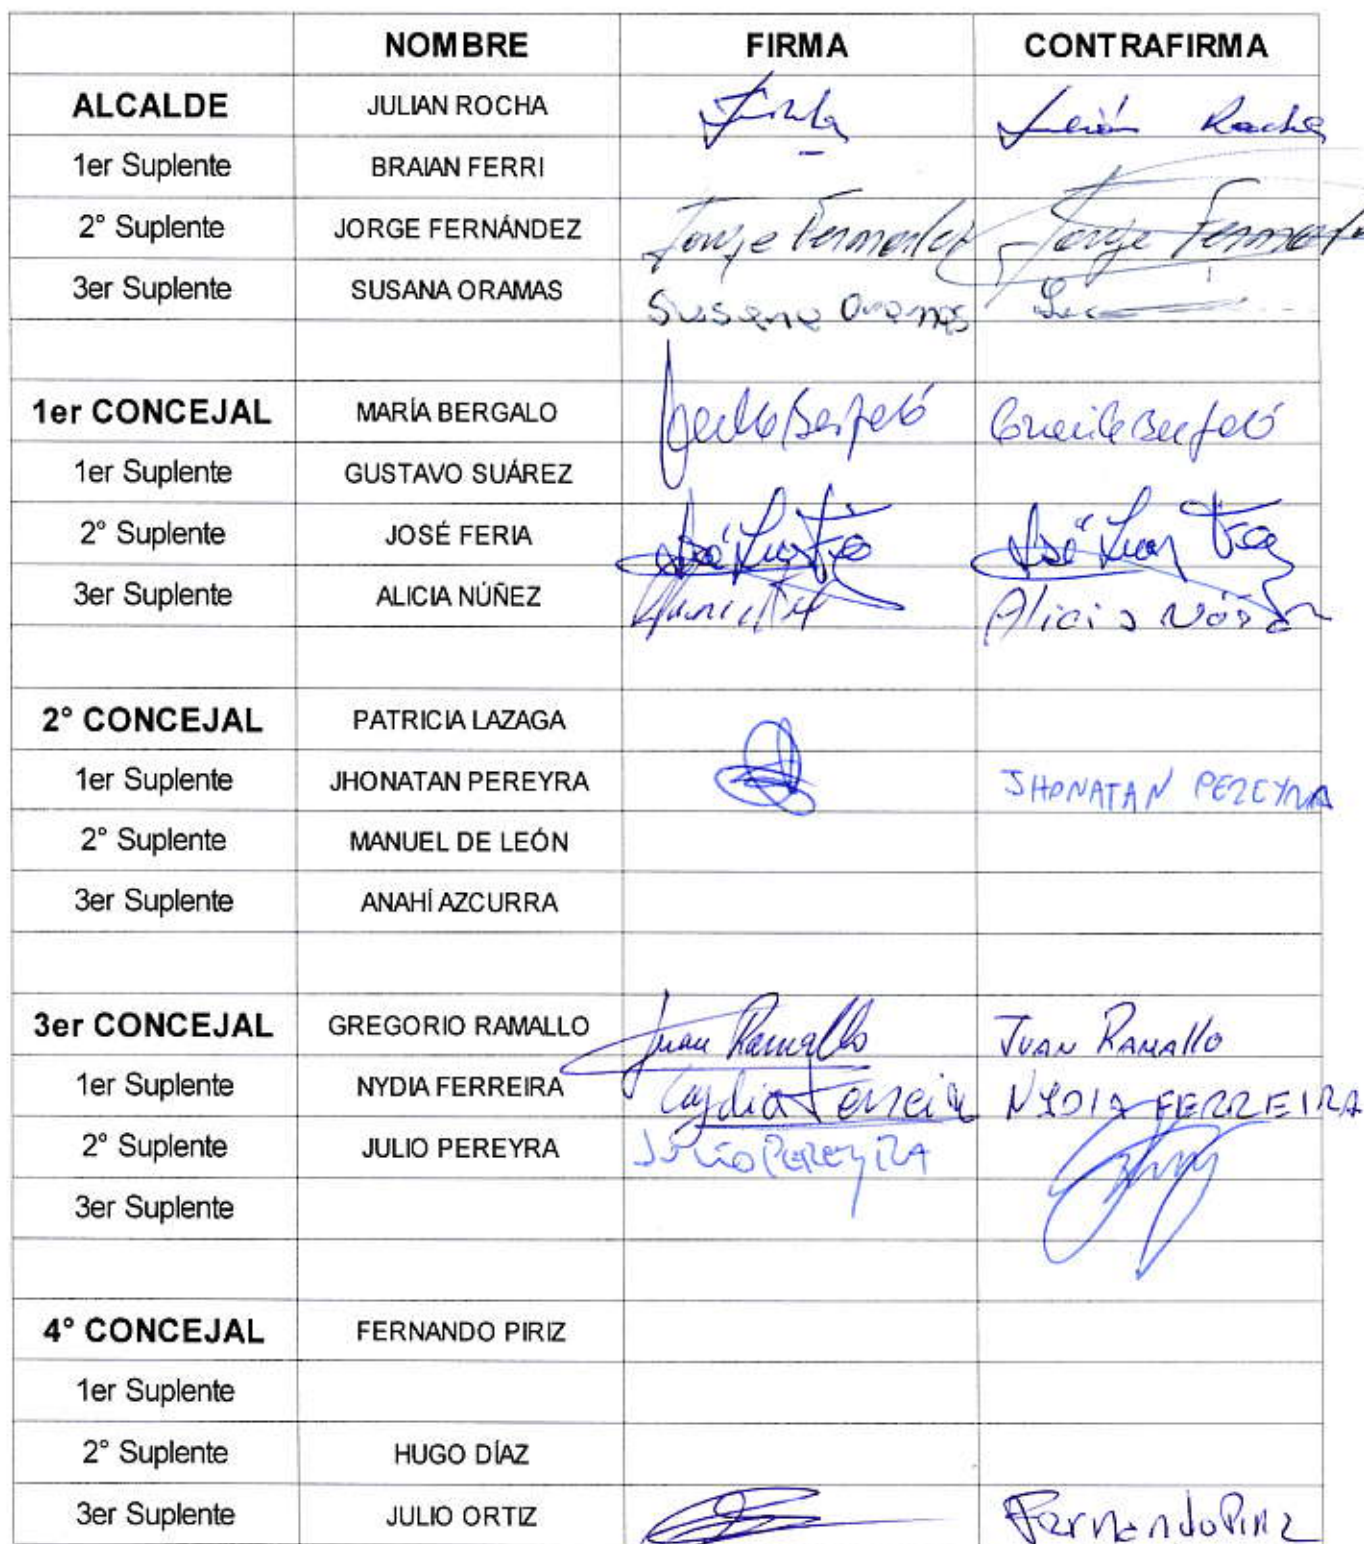 NOMBRE FIRMA CONTRAFIRMA
ALCALDE JULIAN ROCHA Rocha
1er Suplente BRAIAN FERRI
2° Suplente JORGE FERNÁNDEZ Jorge Jorge
3er Suplente SUSANA ORAMAS Susana Oramas
1er CONCEJAL MARÍA BERGALO
1er Suplente GUSTAVO SUÁREZ
2° Suplente JOSÉ FERIA José Luis José Luis
3er Suplente ALICIA NÚÑEZ Alicia
2° CONCEJAL PATRICIA LAZAGA
1er Suplente JHONATAN PEREYRA JHONATAN PEREYRA
2° Suplente MANUEL DE LEÓN
3er Suplente ANAHÍ AZCURRA
3er CONCEJAL GREGORIO RAMALLO Juan Ramallo JUAN RAMALLO
1er Suplente NYDIA FERREIRA Nydia Ferreira NYDIA FERREIRA
2° Suplente JULIO PEREYRA JULIO PEREYRA
3er Suplente
4° CONCEJAL FERNANDO PIRIZ
1er Suplente
2° Suplente HUGO DÍAZ
3er Suplente JULIO ORTIZ Fernando Piriz